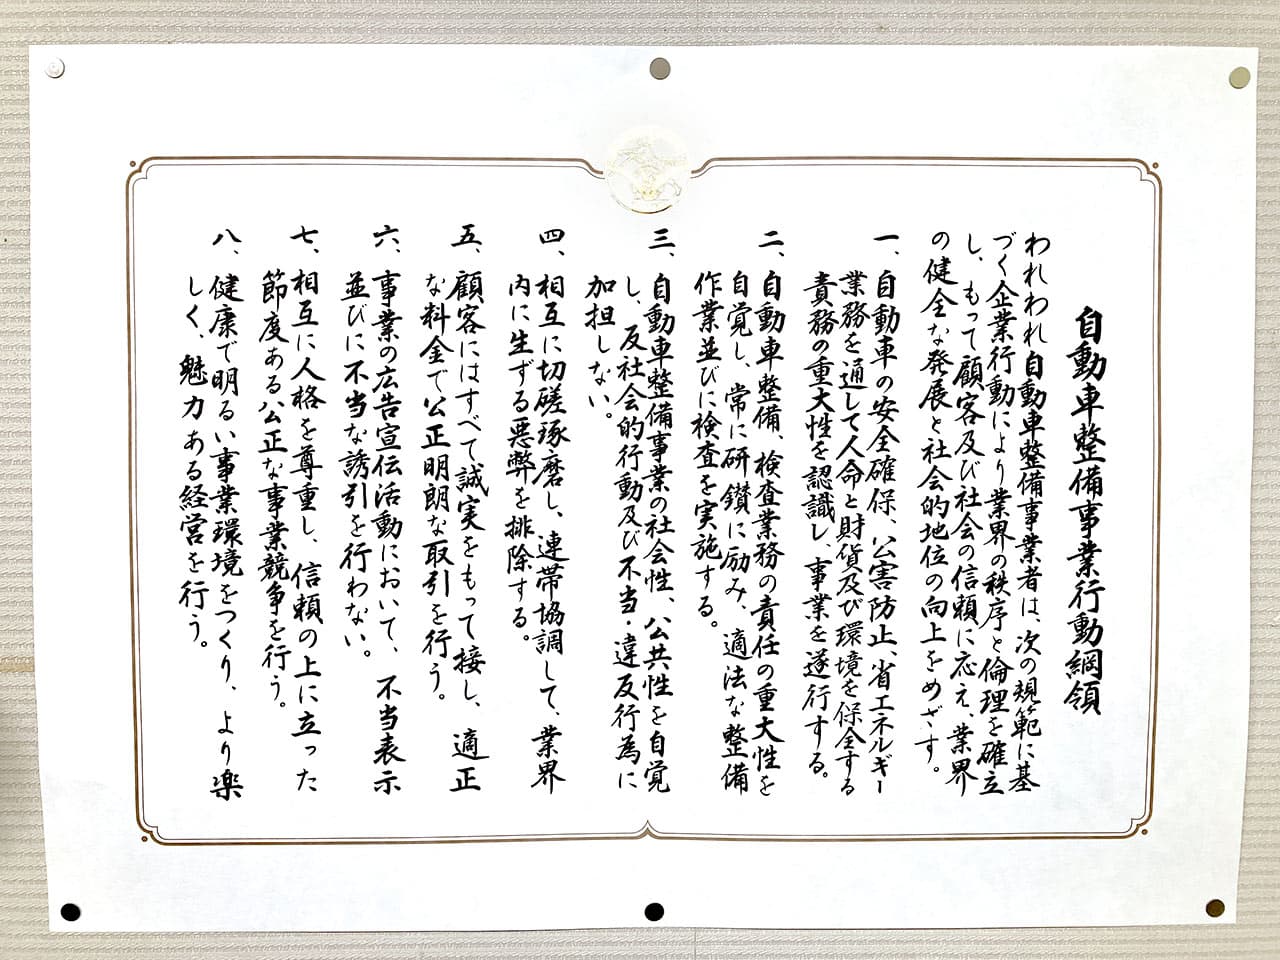 自動車整備事業行動綱領
われわれ自動車整備事業者は、次の規範に基
づく企業行動により業界の秩序と倫理を確立
し、もって顧客及び社会の信頼に応え、業界
の健全な発展と社会的地位の向上をめざす。
一、自動車の安全確保、公害防止、省エネルギー
業務を通して人命と財貨及び環境を保全する
責務の重大性を認識し事業を遂行する。
二、自動車整備、検査業務の責任の重大性を
自覚し、常に研鑽に励み、適法な整備
作業並びに検査を実施する。
三、自動車整備事業の社会性、公共性を自覚
し、反社会的行動及び不当・違反行為に
加担しない。
四、相互に切磋琢磨し、連帯協調して、業界
内に生ずる悪弊を排除する。
五、顧客にはすべて誠実をもって接し、適正
な料金で公正明朗な取引を行う。
六、事業の広告宣伝活動において、不当表示
並びに不当な誘引を行わない。
七、相互に人格を尊重し、信頼の上に立った
節度ある公正な事業競争を行う。
八、健康で明るい事業環境をつくり、より楽
しく、魅力ある経営を行う。